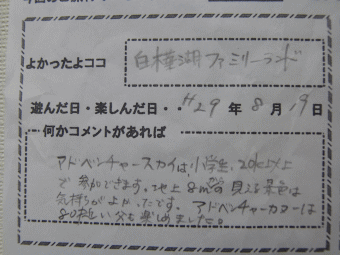 よかったよココ 白樺湖ファミリーランド
遊んだ日・楽しんだ日・・H29年8月19日
何かコメントがあれば
アドベンチャースカイは小学生、20kg以上
で参加できます。地上8m 見える景色は
気持ちがよかったです。アドベンチャーカヌーは
80 父も楽しめました。